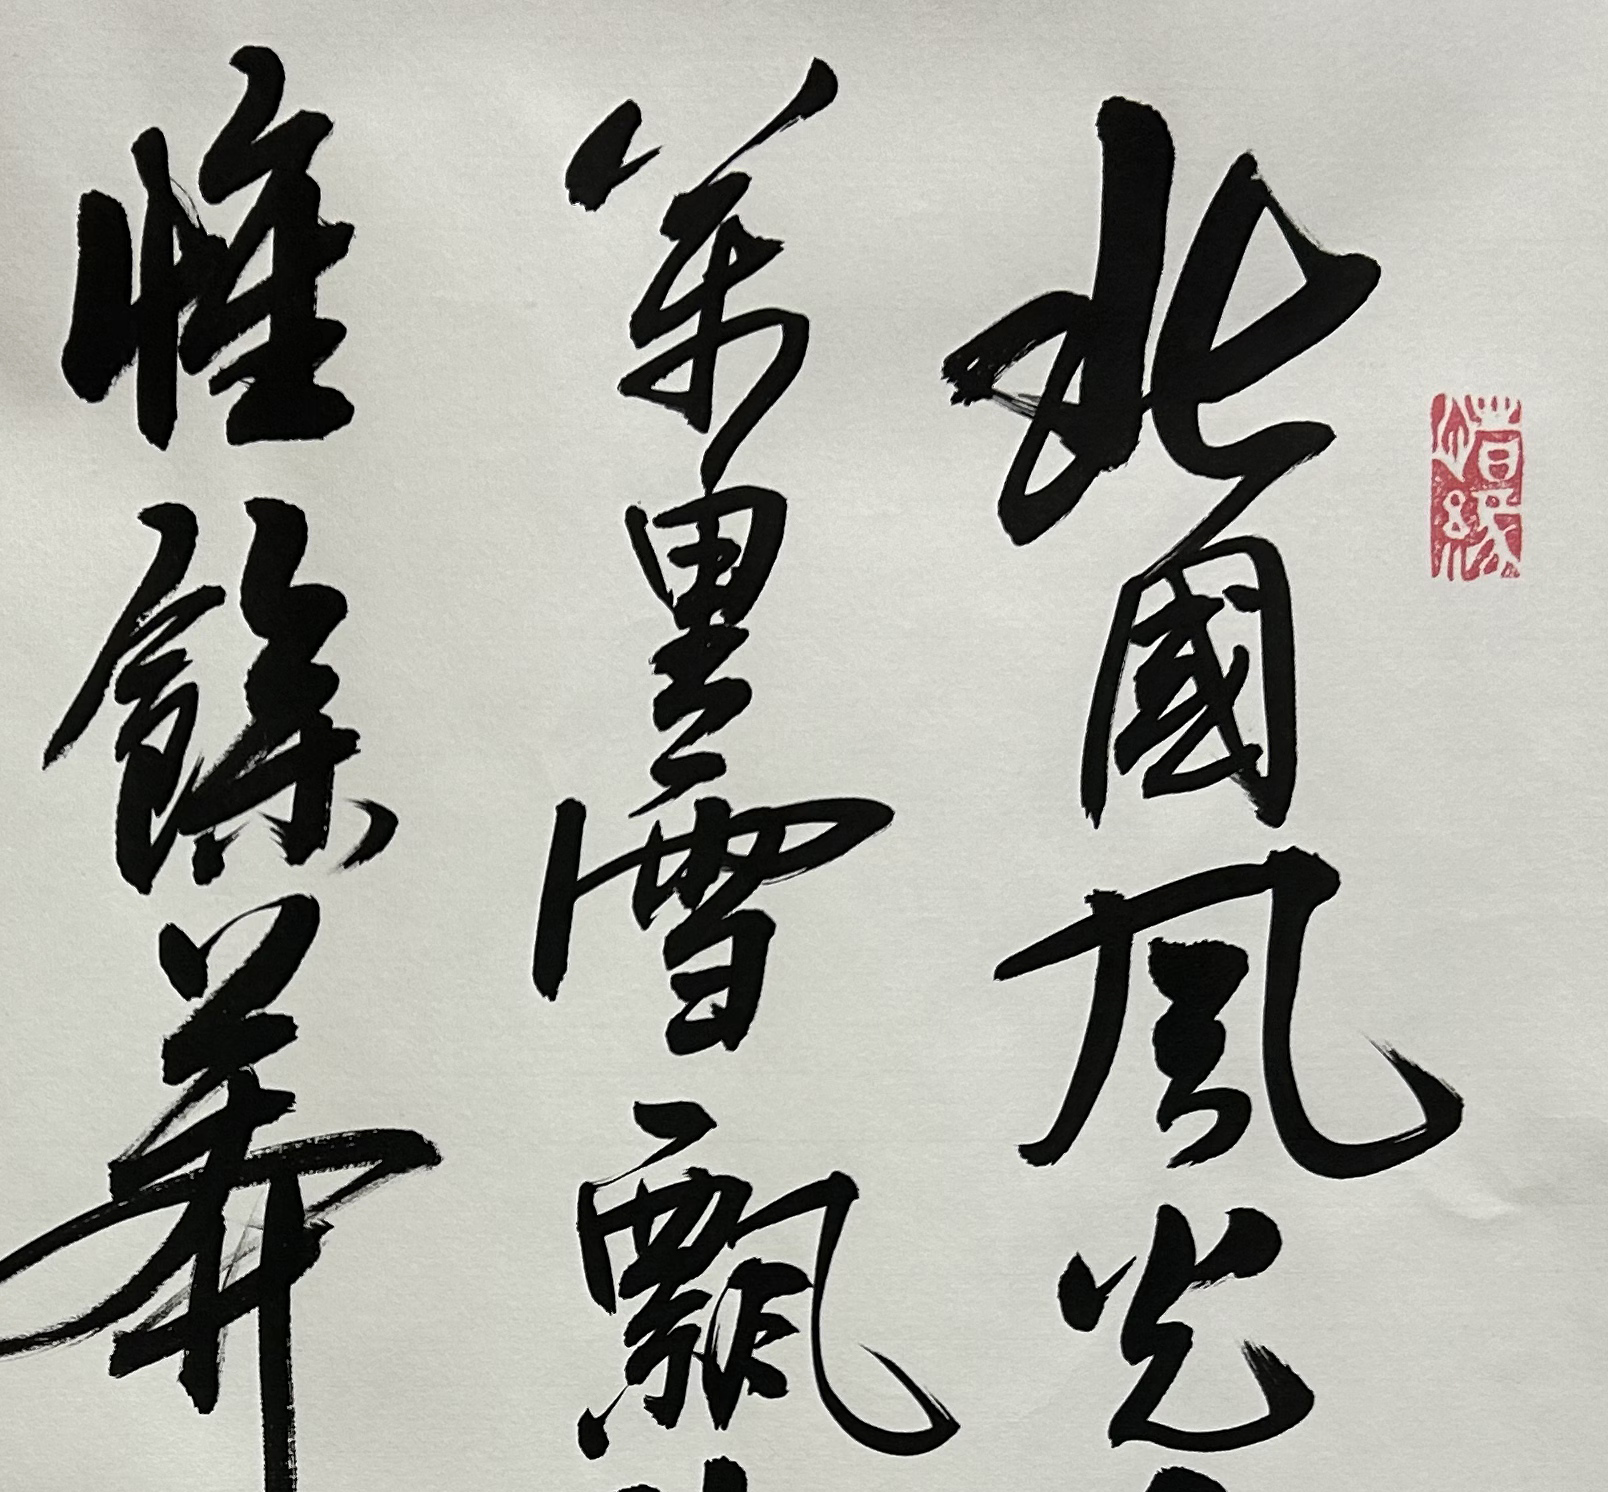 北國風光
萬里雪飄
惟餘莽
惜緣